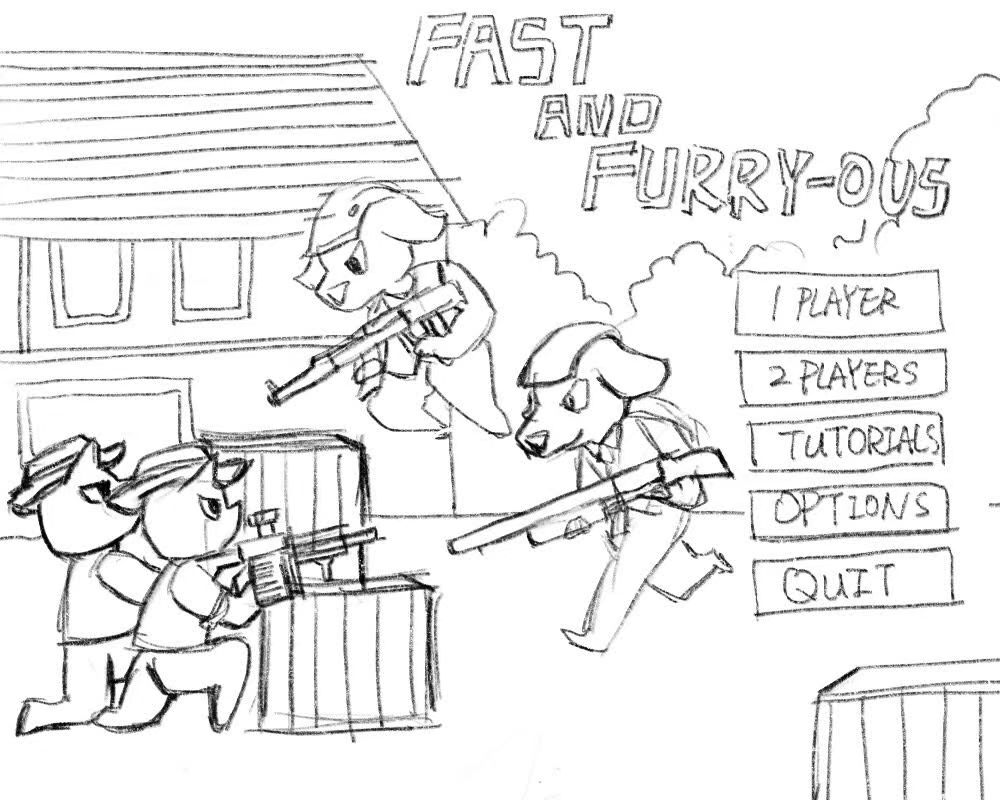 FAST
AND
FURRY-OUS
1 PLAYER
2 PLAYERS
TUTORIALS
OPTIONS
QUIT